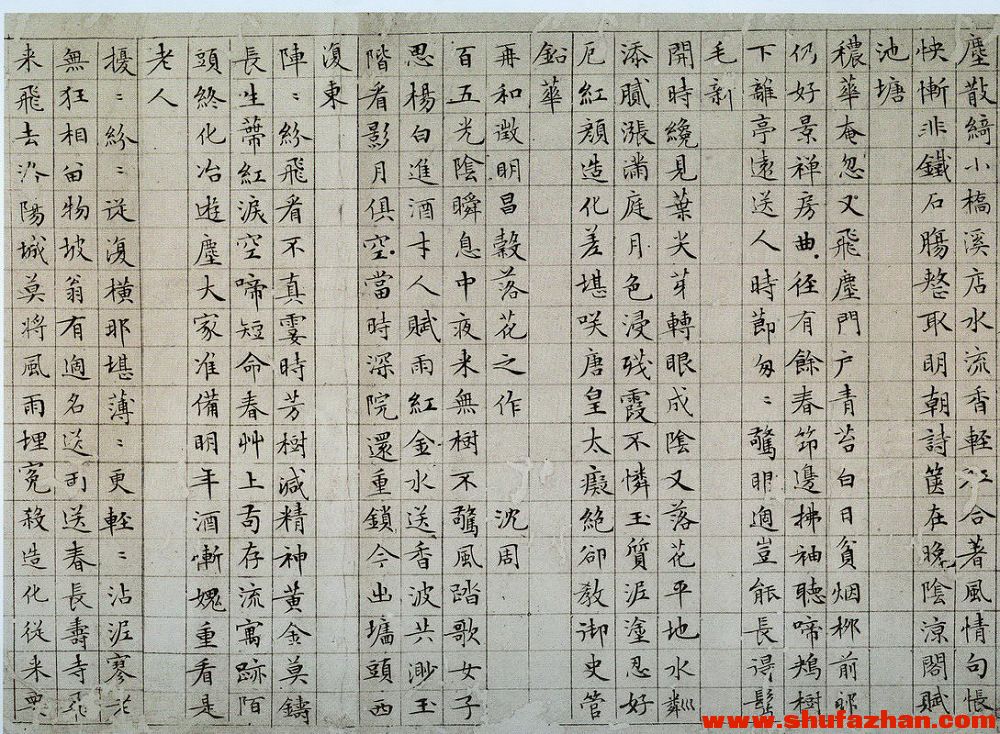 塵散綺小橋溪店水流香輕紅合著風情句悵
怏慚非鐵石腸整取明朝詩篋在晚陰涼閣賦
池塘
穠華奄忽又飛塵門戶青苔白日貧烟柳前郎
仍好景禅房曲徑有餘春笻邊拂袖聽啼鴂樹
下離亭遠送人時節匆〻驚眼過豈能長得鬢
毛新
開時纔見葉尖芽轉眼成陰又落花平地水粼
添膩漲滿庭月色浸殘霞不憐玉質泥塗忍好
厄紅顏造化差堪咲唐皇太癡絕卻教御史管
鉛華
再和徵明昌穀落花之作 沈周
百五光陰瞬息中夜来無樹不驚風踏歌女子
思楊白進酒才人賦雨紅金水送香波共渺玉
階看影月俱空當時深院還重鎖今出墻頭西
復東
陣〻紛飛看不真霎時芳樹減精神黃金莫鑄
長生蒂紅淚空啼短命春艸上苟存流寓跡陌
頭終化冶遊塵大家准備明年酒慚媿重看是
老人
擾〻紛〻從復横那堪薄〻更輕〻沾泥寥老
無狂相留物坡翁有過名送雨送春長壽寺飛
来飛去洛陽城莫將風雨埋冤殺造化從来要
www.shufazhan.com